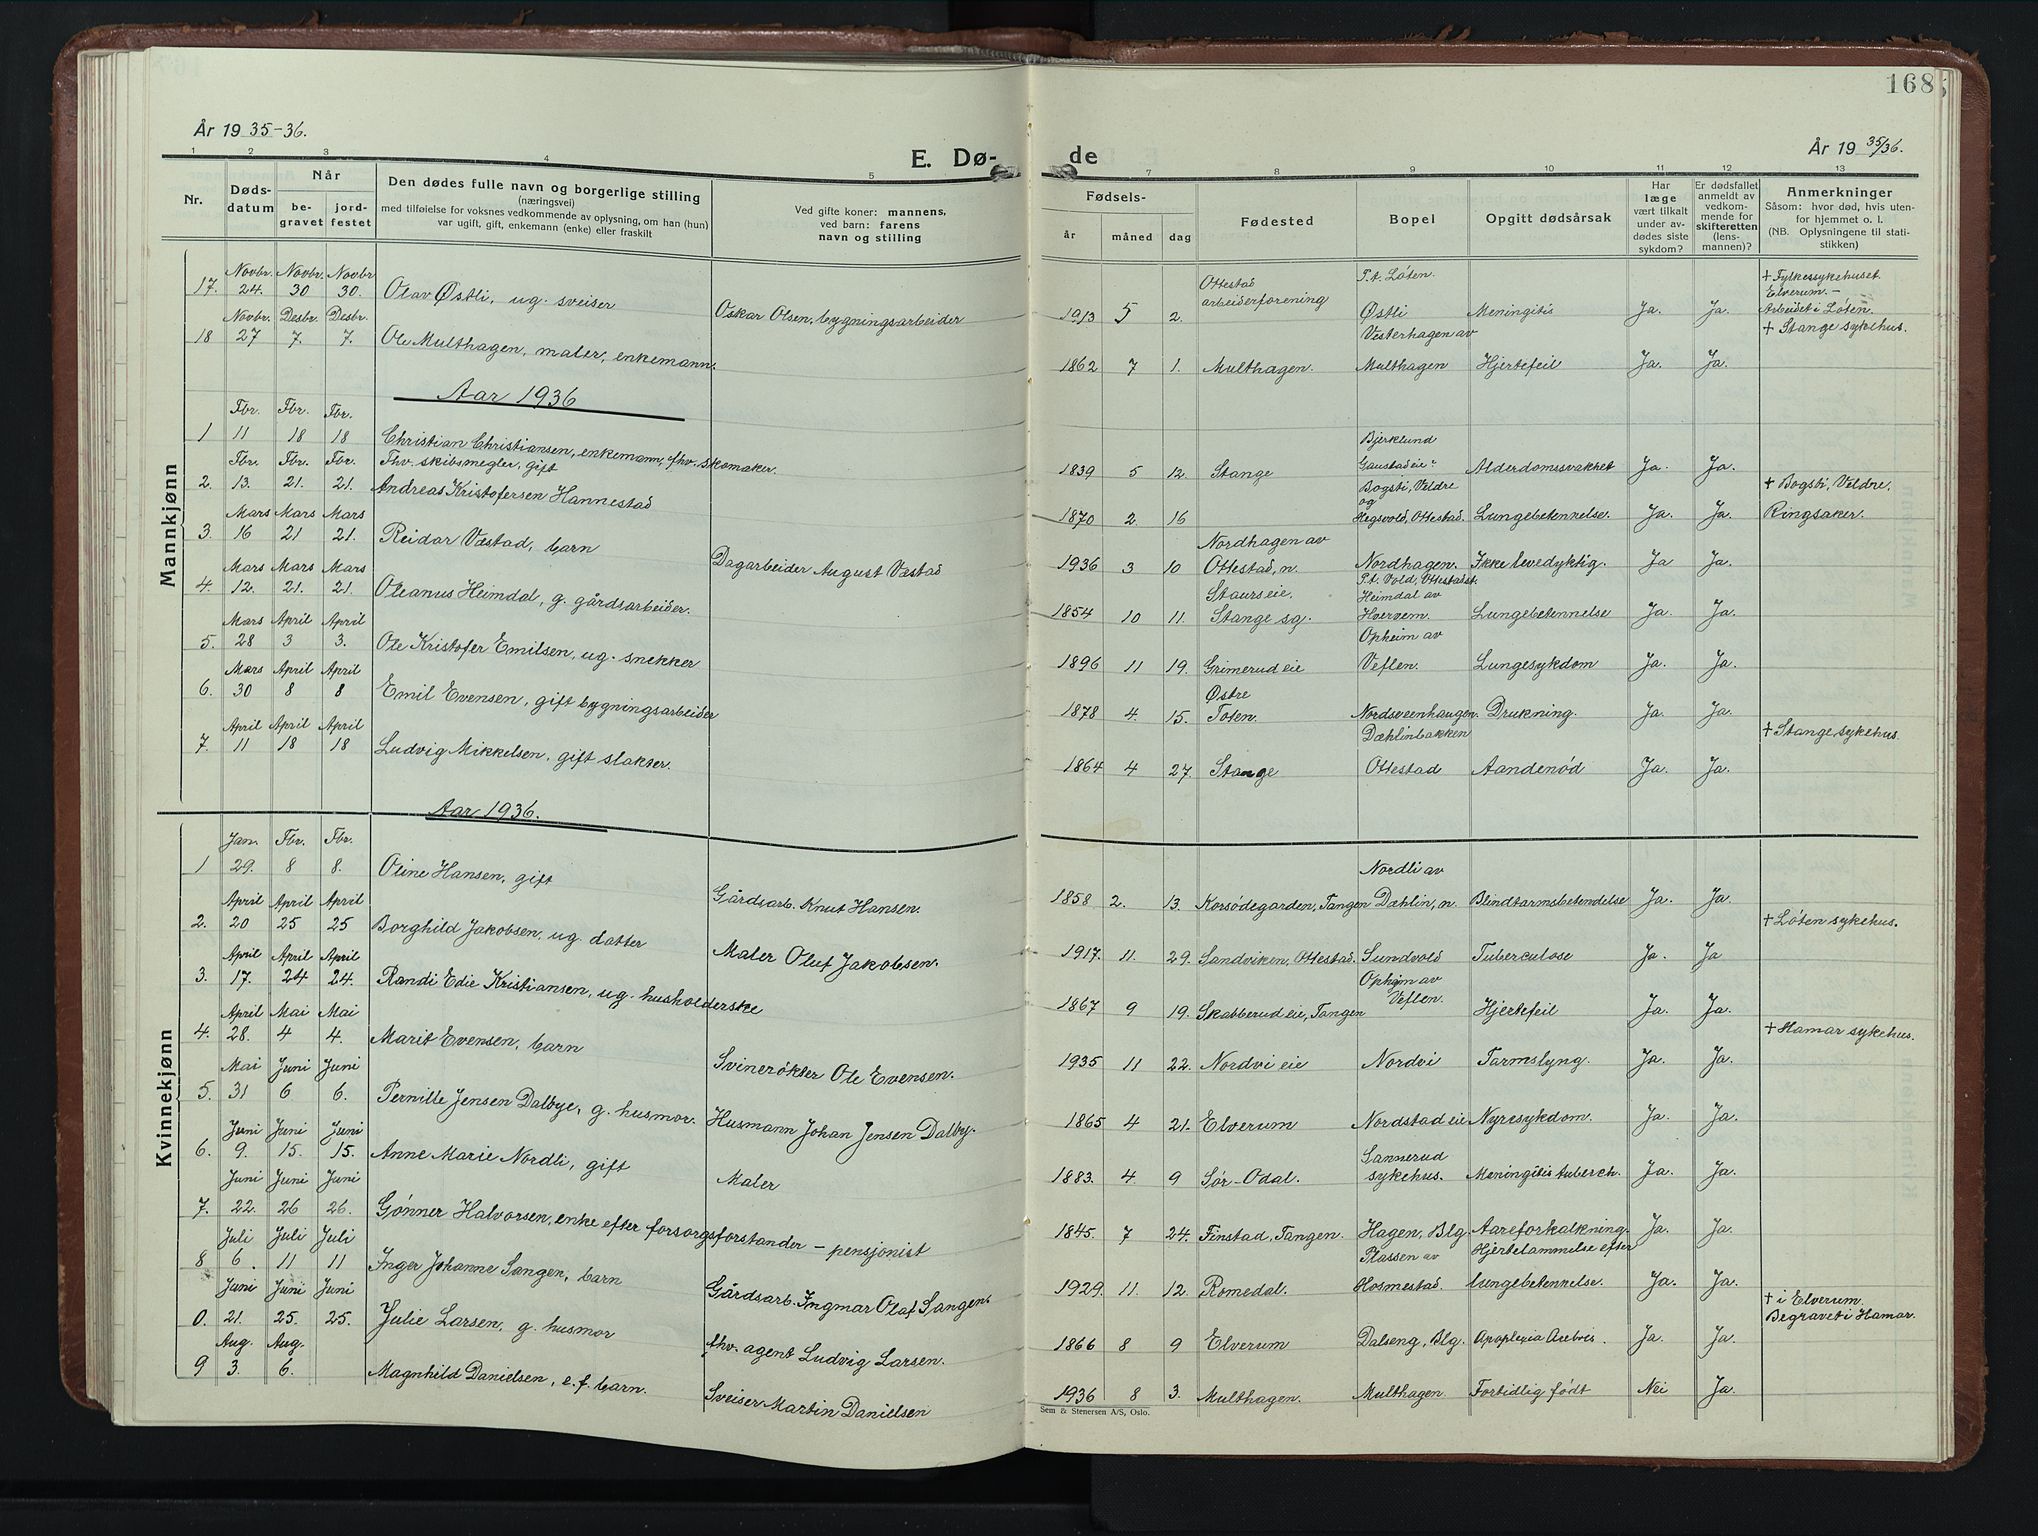 168
År 1935-36.
E. Dø- de
År 1935/36.
1 2 3 4 5 7 8 9 10 11 12 13
Nr.
Døds-datum
Når
be-gravet
jord-festet
Den dødes fulle navn og borgerlige stilling
(næringsvei)
med tilføielse for voksnes vedkommende av oplysning, om han (hun)
var ugift, gift, enkemann (enke) eller fraskilt
Ved gifte koner: mannens,
ved barn: farens
navn og stilling
Fødsels-
år måned dag
Fødested
Bopel
Opgitt dødsårsak
Har læge vært tilkalt under av-dødes siste sykdom?
Er dødsfallet anmeldt av vedkom-mende for skifteretten (lens-mannen)?
Anmerkninger
Såsom: hvor død, hvis uten-for hjemmet o. l.
(NB. Oplysningene til stati-stikken)
Mannkjønn
17. Novbr. 24. Novbr. 30 Novbr. 30. Olav Østli, ug. sveiser Oskar Olsen, bygningsarbeider 1913 5 2. Ottestad arbeiderforening P.t. Løten. Østli Meningitis Ja. Ja. + Fylkessykehuset Elverum. - Arbeidet i Løten.
18 Novbr. 27 Desbr. 7. Desbr. 7. Ole Multhagen, maler, enkemann. 1862 7 1. Multhagen. Vesterhagen av Multhagen Hjertefeil Ja. Ja. + Stange sykehus.
Aar 1936
1 Fbr. 11 Fbr. 18 Fbr. 18 Christian Christiansen, enkemann, fhv. skomaker. 1839 5 12. Stange Bjerklund Gaustadeie Alderdomssvakhet Ja. Ja.
2. Fbr. 13. Fbr. 21. Fbr. 21. Fhv. skibsmegler, gift Andreas Kristofersen Hannestad 1870 2. 16 Bogsti, Veldre og Hegsvold, Ottestad. Lungebetennelse. Ja. Ja. + Bogsti, Veldre, Ringsaker.
3. Mars 16 Mars 21 Mars 21. Reidar Væstad, barn Dagarbeider August Væstad 1936 3 10 Nordhagen av Ottestad, n. Nordhagen. Ikke levedyktig. Ja Ja.
4. Mars 12. Mars 21. Mars 21. Oleanus Heimdal, g. gårdsarbeider. 1854 10 11. Staurseie. Stange sg. P.t. Vold, Ottestadst. Heimdal av Hvervem. Lungebetennelse Ja. Ja.
5. Mars 28 April 3 April 3. Ole Kristofer Emilsen, ug. snekker 1896 11 19. Grimerud eie Opheim av Veflen. Lungesykdom Ja. Ja.
6. Mars 30 April 8 April 8 Emil Evensen, gift bygningsarbeider 1878 4. 15. Østre Toten. Nordsveenhaugen. Drukning. Ja. Ja.
7. April 11 April 18 April 18 Ludvig Mikkelsen, gift slakter. 1864 4 27. Stange Dæhlinbakken Ottestad Aandenød Ja. Ja. + Stange sykehus.
Kvinnekjønn
Aar 1936.
1 Jan. 29. Fbr. 8 Fbr. 8. Oline Hansen, gift Gårdsarb. Knut Hansen. 1858 2. 13. Korsødegarden, Tangen Nordli av Dæhlin, n. Blindtarmsbetendelse Ja. Ja.
2. April 20 April 25 April 25 Borghild Jakobsen, ug. datter Maler Oluf Jakobsen. 1917. 11. 29. Sandviken, Ottestad. Sundvold Tuberculose Ja. Ja + Løten sykehus.
3. April 17. April 24 April 24. Randi Edie Kristiansen, ug. husholderske 1867 9 19. Skabberud eie, Tangen Opheim av Veflen. Hjertefeil Ja. Ja.
4. April 28. Mai 4 Mai 4. Marit Evensen, barn Svinerøkter Ole Evensen. 1935 11 22. Nordvi eie Nordvi Tarmslyng. Ja. Ja. + Hamar sykehus.
5. Mai 31 Juni 6 Juni 6. Pernille Jensen Dalbye, g. husmor. Husmann Johan Jensen Dalby. 1865 4 21. Elverum Nordstad eie Nyresykdom. Ja. Ja.
6. Juni 9. Juni 15. Juni 15. Anne Marie Nordli, gift Maler 1883. 4 9 Sør-Odal. Sannerud sykehus. Meningitis tuberch. Ja. Ja.
7. Juni 22. Juni 26 Juni 26. Gønner Halvorsen, enke efter forsorgsforstander - pensjonist 1845. 7 24. Finstad, Tangen. Hagen, Blg. Aareforkalkning. Ja. Ja.
8 Juli 6. Juli 11 Juli 11 Inger Johanne Sangen, barn Gårdsarb. Ingmar Olaf Sangen. 1929. 11. 12. Romedal. Plassen av Hosmestad. Hjertelammelse efter lungebetennelse. Ja. Ja.
0. Juni 21. Juni 25. Juni 25. Julie Larsen, g. husmor fhv. agent Ludvig Larsen. 1866 8 9 Elverum Dalseng, Blg. Apoplexia Ja. Ja. + i Elverum. Begravet i Hamar.
9 Aug. 3. Aug. 6. Magnhild Danielsen, e.f. barn. Sveiser Martin Danielsen 1936 8 3. Multhagen. Multhagen. Fortidlig født Nei Ja.
Sem & Stenersen A/S, Oslo.